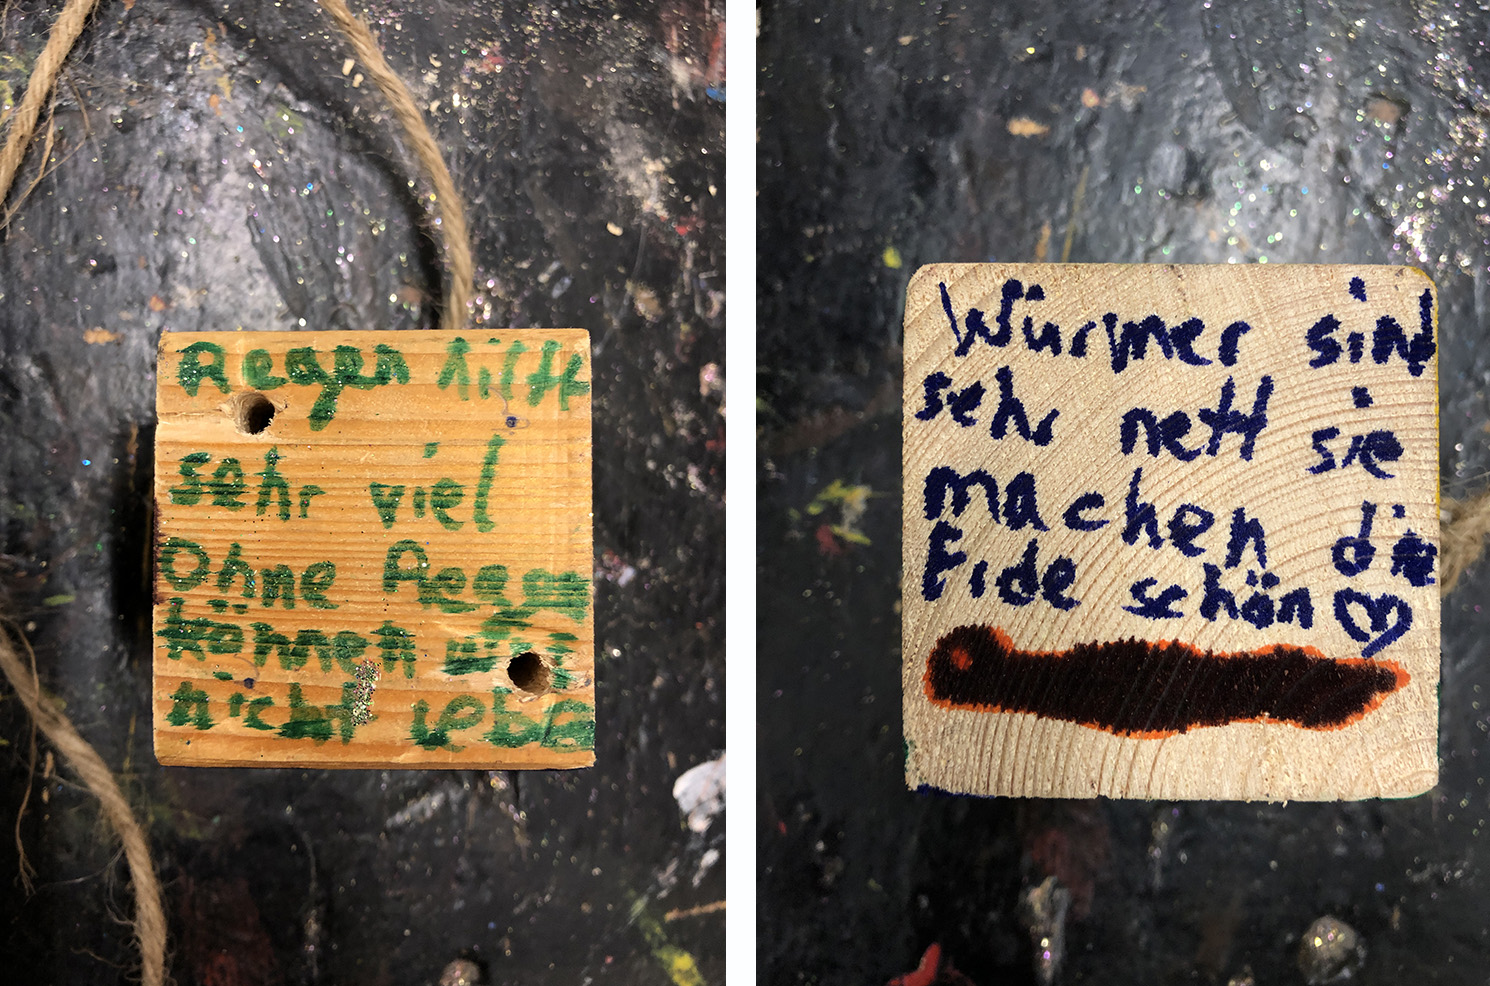 Regen hilft
sehr viel
Ohne Regen
können wir
nicht leben
Würmer sind
sehr nett sie
machen die
Erde schön